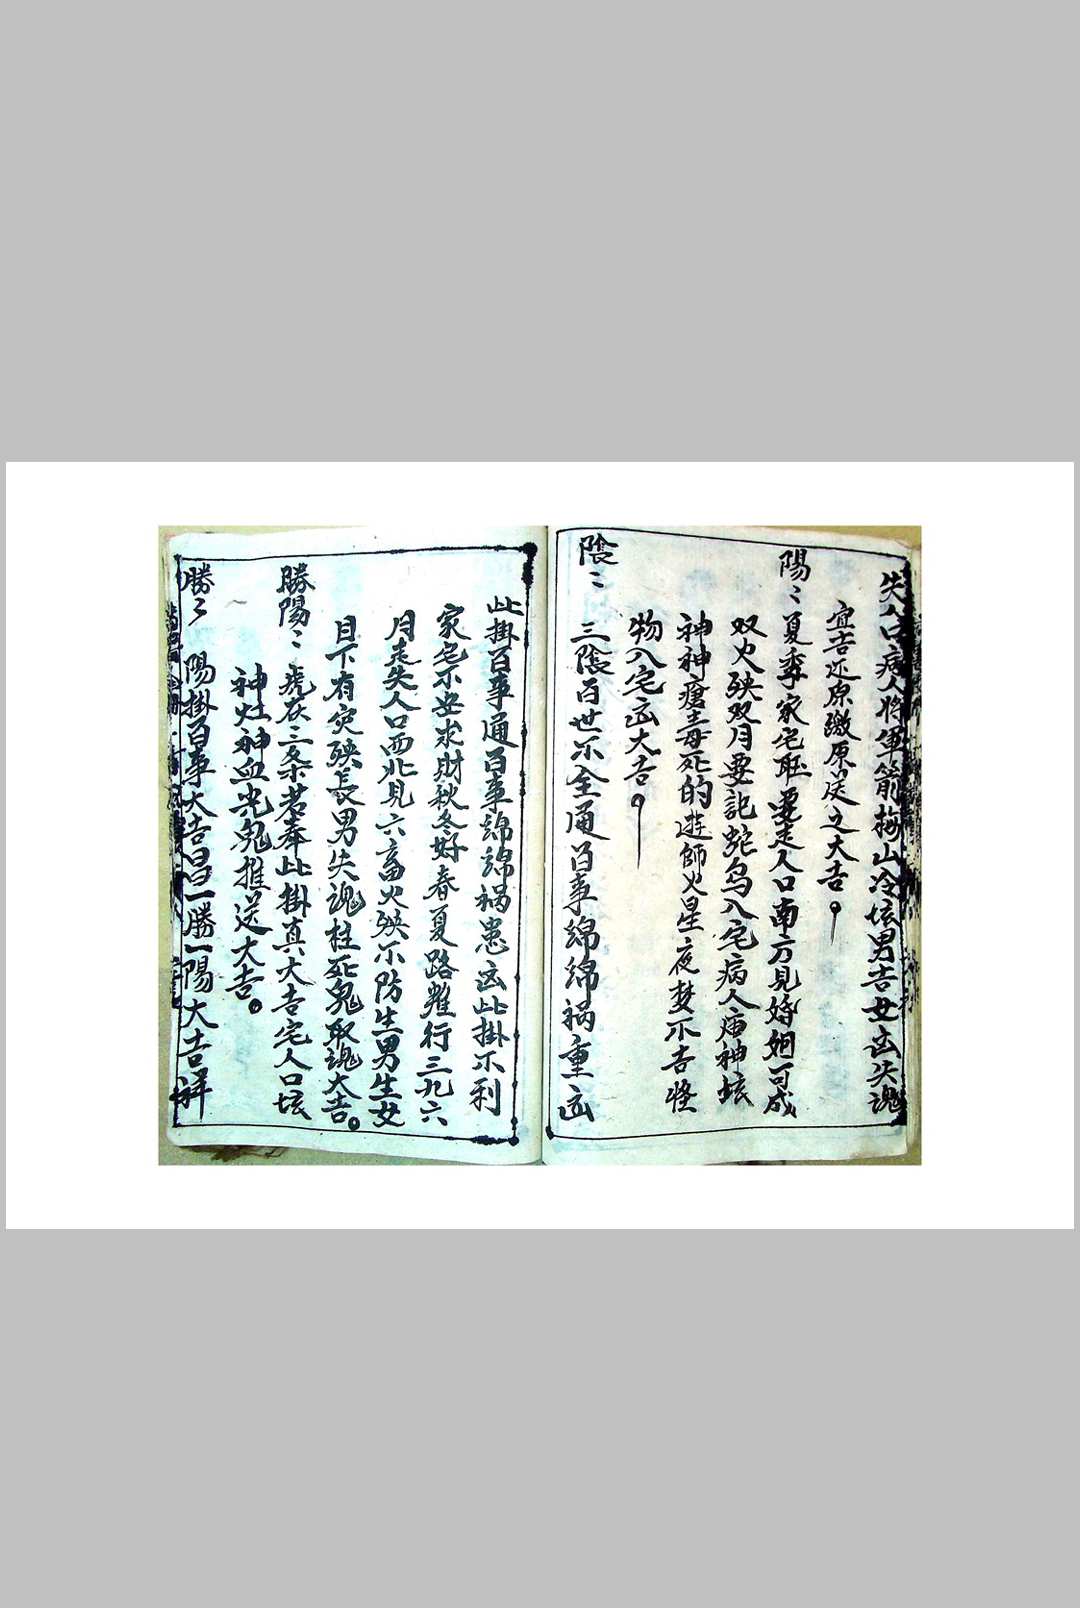 失人口病人將軍箭梅山冷垓男吉女凶失魂
宜吉还原繳原送之大吉
陽〻夏季家宅旺要走人口南方見婚姻可成
双火殃双月要記蛇鸟入宅病人庙神垓
神神瘡主毒死的遊師火星夜梦不吉怪
物入宅凶大吉
陰〻三陰百世不全通百事綿綿禍重凶
此掛百事通百事綿綿禍患凶此掛不利
家宅不安求財秋冬好春夏路難行三九六
月走失人口西北見六畜火殃不防生男生女
目下有灾殃長男失魂柱死鬼取魂大吉
勝陽〻虎在三条若奉此掛真大吉宅人口垓
神灶神血光鬼推送大吉
勝〻陽掛百事大吉昌一勝一陽大吉祥